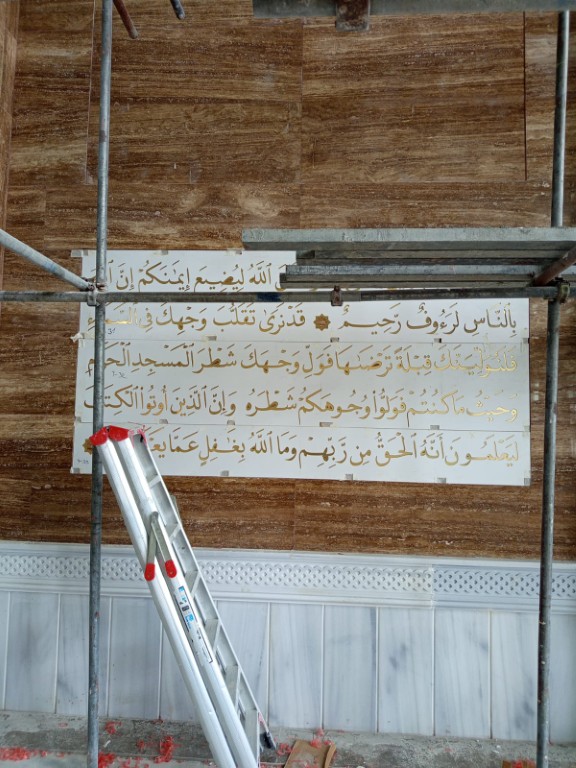 ٱللَّهُ لِيُضِيعَ إِيمَٰنَكُمْ إِنَّ
بِٱلنَّاسِ لَرَءُوفٌ رَّحِيمٌ ۞ قَدْ نَرَىٰ تَقَلُّبَ وَجْهِكَ فِي
فَلَنُوَلِّيَنَّكَ قِبْلَةً تَرْضَىٰهَا فَوَلِّ وَجْهَكَ شَطْرَ ٱلْمَسْجِدِ ٱلْحَرَامِ
وَحَيْثُ مَا كُنتُمْ فَوَلُّوا۟ وُجُوهَكُمْ شَطْرَهُۥ وَإِنَّ ٱلَّذِينَ أُوتُوا۟ ٱلْكِتَٰبَ
لَيَعْلَمُونَ أَنَّهُ ٱلْحَقُّ مِن رَّبِّهِمْ وَمَا ٱللَّهُ بِغَٰفِلٍ عَمَّا